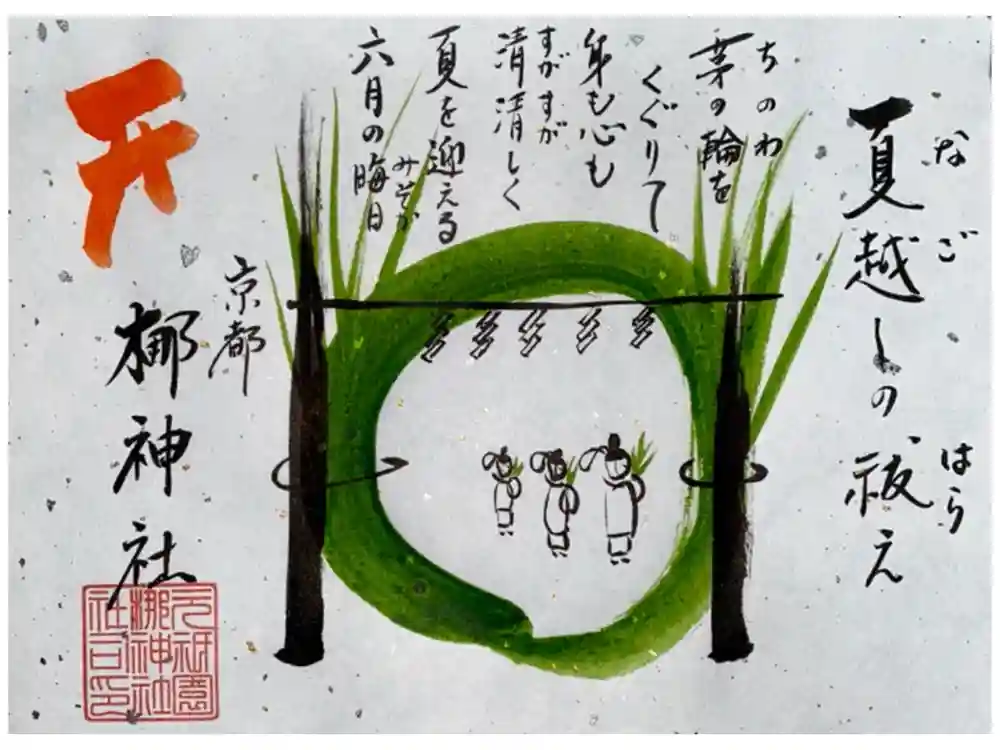 なごはら
夏越しの祓え
ちのわ
茅の輪を
くぐりて
身も心も
すがすが
清清しく
夏を迎える
みそか
六月の晦日
京都
梛神社
元祇園
梛神社
社司印